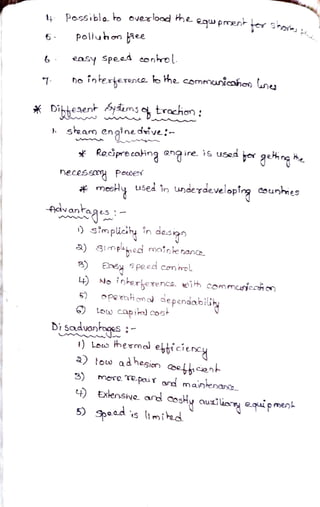 4. Possible to overload the equipment for short
5- pollution free
6. easy speed control.
7. no interference to the communication lines
* Different Systems of traction :
1. steam engine drive :-
* Reciprocating engine is used for getting the
necessary power
* mostly used in underdeveloping countries
Advantages :-
1) simplicity in design
2) Simplified maintenance
3) Easy speed control
4) No interference with communication
5) operational dependability
6) Low capital cost
Disadvantages :-
1) Low thermal efficiency
2) low adhesion coefficient
3) more repair and maintenance
4) Extensive and costly auxiliary equipment
5) Speed is limited